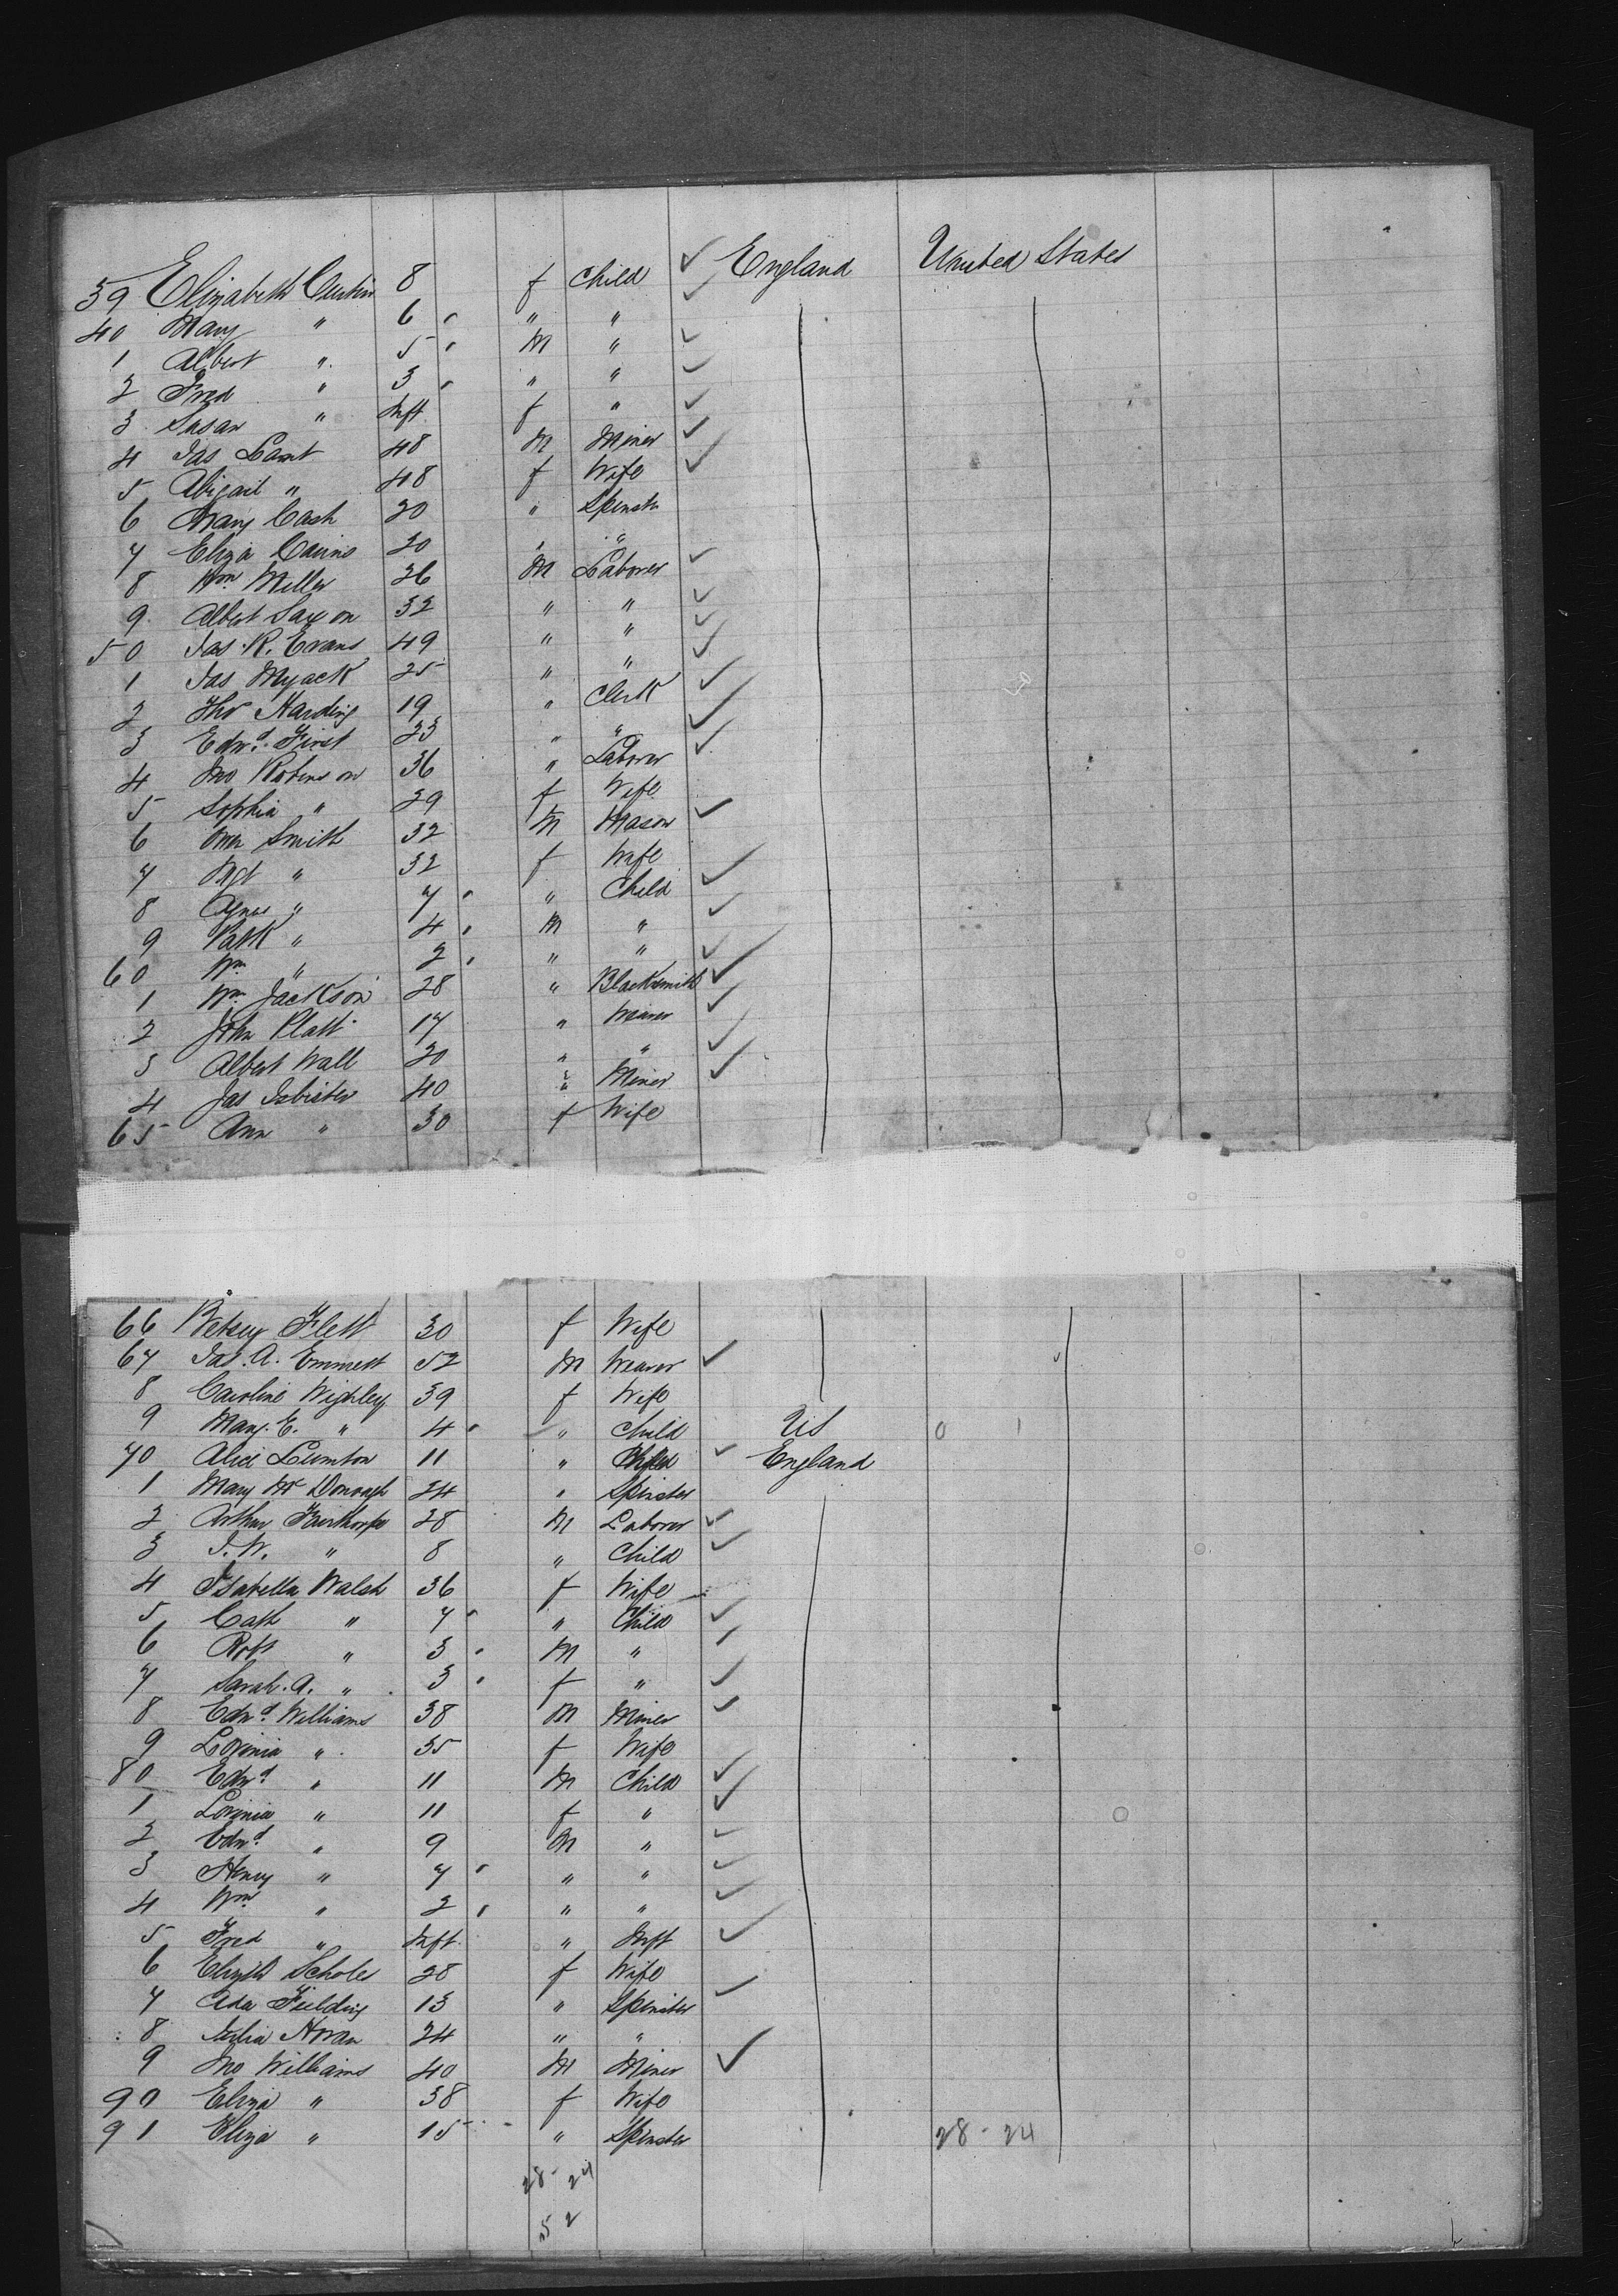 39 Elizabeth Austin 8 f Child ✓ England United States
40 Mary " 6 " " ✓
1 Albert " 5 M " ✓
2 Fred " 3 " " ✓
3 Susan " Inft f " ✓
4 Jas Lamt 48 M Miner ✓
5 Abigail " 48 f Wife ✓
6 Mary Cash 20 " Spinstr
7 Eliza Cairns 20 " "
8 Wm Miller 26 M Laborer ✓
9 Albert Saxon 32 " " ✓
50 Jas. R. Evans 49 " " ✓
1 Jas Myack 25 " " ✓
2 Tho Harding 19 " Clerk ✓
3 Edwd. First 23 " " ✓
4 Jno Robinson 36 " Laborer ✓
5 Sophia " 29 f Wife
6 Owen Smith 32 M Mason ✓
7 Mgt " 32 f Wife
8 Agnes " 7 " Child ✓
9 Patk " 4 M " ✓
60 Wm " 2 " " ✓
1 Wm Jackson 28 " Blacksmith ✓
2 John Platt 17 " Weaver ✓
3 Albert Wall 20 " " ✓
4 Jas Isbister 40 " Miner ✓
65 Ann " 30 f Wife
66 Betsey Flett 30 f Wife
67 Jas. A. Emmett 52 M Weaver ✓
8 Caroline Wighley 39 f Wife
9 Mary. E. " 4 " Child US 0 1
70 Alice Lumton 11 " Child ✓ England
1 Mary McDonagh 24 " Spinster
2 Arthur Fairthorpe 28 M Laborer ✓
3 J. W. " 8 " Child ✓
4 Isabella Walsh 36 f Wife
5 Cath " 7 " Child ✓
6 Robt " 3 M " ✓
7 Sarah. A. " 3 f " ✓
8 Edwd Williams 38 M Miner ✓
9 Lovinia " 35 f Wife
80 Edwd " 11 M Child ✓
1 Lovinia " 11 f " ✓
2 Edwd. " 9 M " ✓
3 Henry " 7 " " ✓
4 Wm " 2 " " ✓
5 Fred " Inft " Inft ✓
6 Elizth Scholes 28 f Wife
7 Ada Fielding 13 " Spinster ✓
8 Julia Horan 24 " "
9 Jno Williams 40 M Miner ✓
90 Eliza " 38 f Wife
91 Eliza " 15 " Spinster 28-24
28-24
52